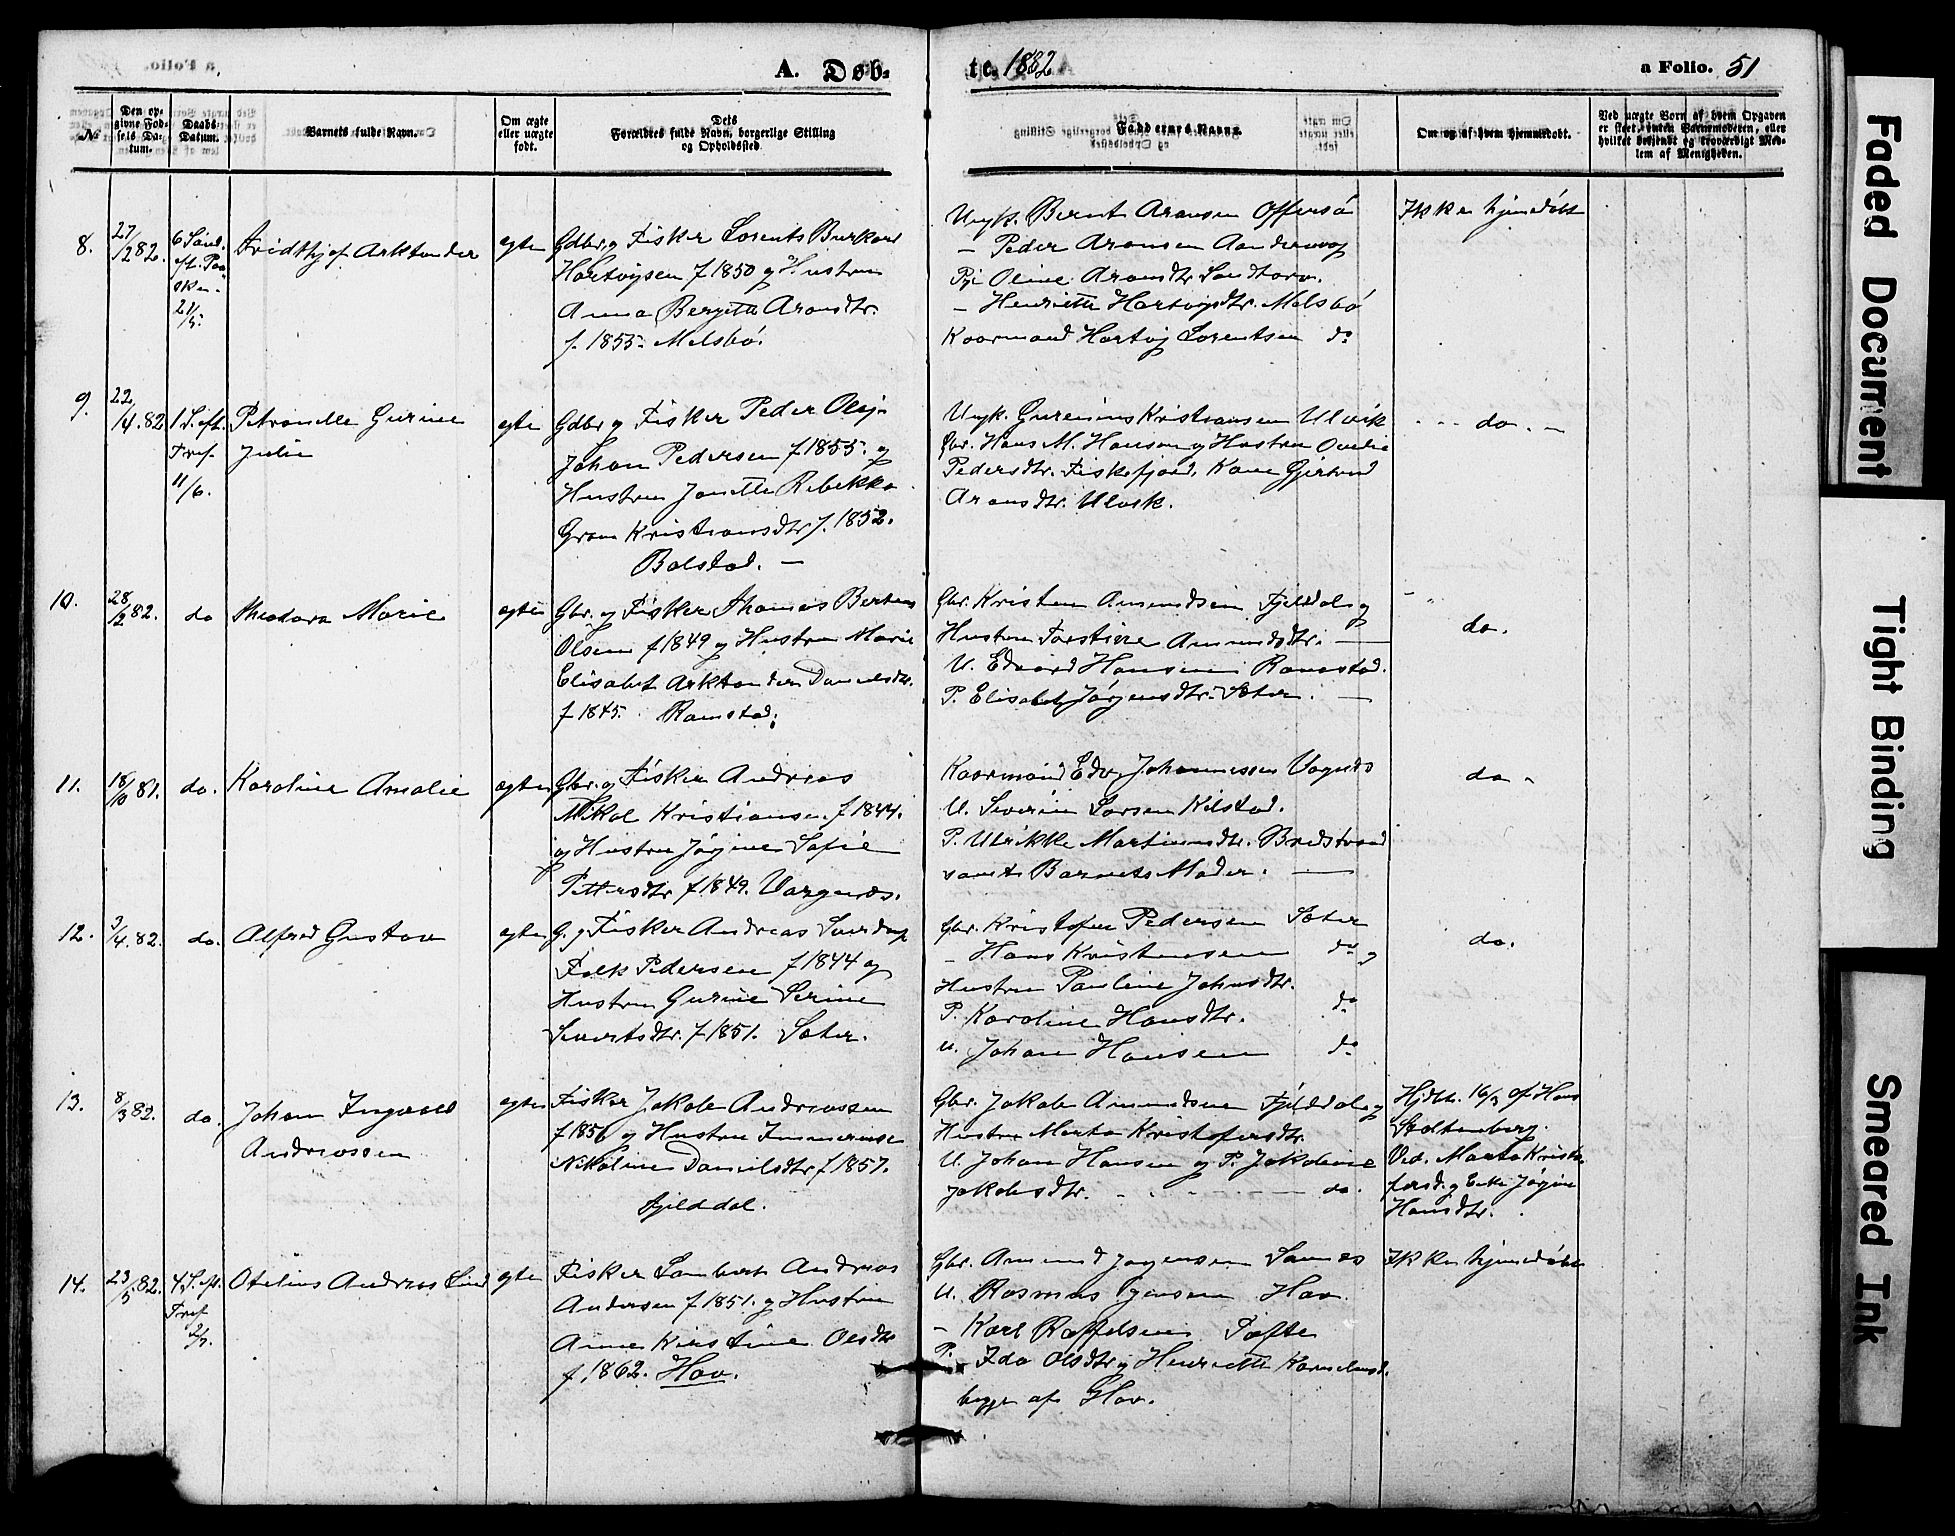 A. Døb-
te. 1882
a Folio. 51
№
Den opgivne Fødsels Datum.
Daabs Datum.
Barnets fulde Navn.
Om ægte eller uægte født.
Dets Forældres fulde Navn, borgerlige Stilling og Opholdssted.
Faddernes Navne.
Om og af hvem hjemmedøbt.
Ved uægte Børn af hvem Opgaven er skeet, inten Barnemoderen, eller hvilket bekjendt og troværdigt Medlem af Menigheden.
8.
27/2 82.
6 Sønd.
eft. Paa
sken.
21/5.
Fridthjof Arktander
egte
Gdbr. og Fisker Lorents Burkard
Hartvigsen f 1850 og Hustru
Anna Bergitte Aronsdtr.
f. 1855. Melsbø.
Ungk. Bernt Aronsen Offersø
— Peder Aronsen Aandervaag
Pi. Oline Aronsdtr. Sandtorv.
— Henriette Hartvigsdtr. Melsbø
Kaarmand Hartvig Lorentsen do
Ikke hjemdøbt
9.
22/4.82
1 S. eft.
Tref.
11/6.
Petronelle Gurine
Julie
egte
Gdbr. og Fisker Peder Olaj
Johan Pedersen f 1855. og
Hustru Janette Rebekka
Gram Kristiansdtr f. 1852.
Bolstad. —
Ungk. Kristiansen Ulvik
Gbr. Hans M. Hansen og Hustru Ovedie
Pedersdtr. Fiskefjord, Kone Gjertrud
Aronsdtr. Ulvik.
do. —
10.
28/2 82.
do
Theodora Marie
egte
Gbr. og Fisker Thomas Bertens
Olsen f 1849 og Hustru Marie
Elisabet Arktander Danielsdtr.
f 1845. Ramstad.
Gbr. Kristen Amundsen Fjelddal og
Hustru Torstine Amundsdtr. —
U. Edvard Hansen Ramstad.
P. Elisabet Jørgensdtr. Sæter. —
do.
11.
18/10 81.
do.
Karoline Amalie
egte
Gbr. og Fisker Andreas
Mikal Kristiansen f 1844.
og Hustru Jørgine Sofie
Pettersdtr f 1849. Vargenæs.
Kaarmand Edv. Johannessen
U. Severin Larsen Kilstad.
P. Ulrikke Martinusdtr. Bredstrand
samt Barnets Moder. —
do -
12.
3/4.82.
do.
Alfred Gustav
egte
G. og Fisker Andreas
Falk Pedersen f 1844 og
Hustru Gurine Serine
Sivertsdtr. f 1851. Sæter.
Gbr. Kristofer Pedersen Sæter
— Hans Kristensen do og
Hustru Pauline Johnsdtr.
P. Karoline Hansdtr. do
U. Johan Hansen do
do.
13.
8/3 82.
do.
Johan Ingvald
Andreassen
egte
Fisker Jakob Andreassen
f 1856 og Hustru
Nikoline Danielsdtr f 1857.
Fjelddal.
Gbr. Jakob Amundsen Fjelddal og
Hustru Marta Kristofersdtr.
U. Johan Hansen og P. Jakobine
Jakobsdtr. — do.
Hjdtt. 16/3 af Hans
Stoltenberg.
Vid. Marta Kristo
fersd. og Enke Jørgine
Hansdtr.
14.
23/5.82.
4 S. eft.
Tref
2/7.
Otelius Andreas Lind
egte
Fisker Lambert Andreas
Andersen f 1851. og Hustru
Anne Kirstine Olsdtr
f. 1862. Hav.
Gbr. Amund Jørgensen Sannes
U. Rasmus Jensen Hav
— Karl Raffelsen Tofte
P. Ida Olsdtr. og Henriette
begge af Hav.
Ikke hjemdøbt
Faded Document
Tight Binding
Smeared Ink